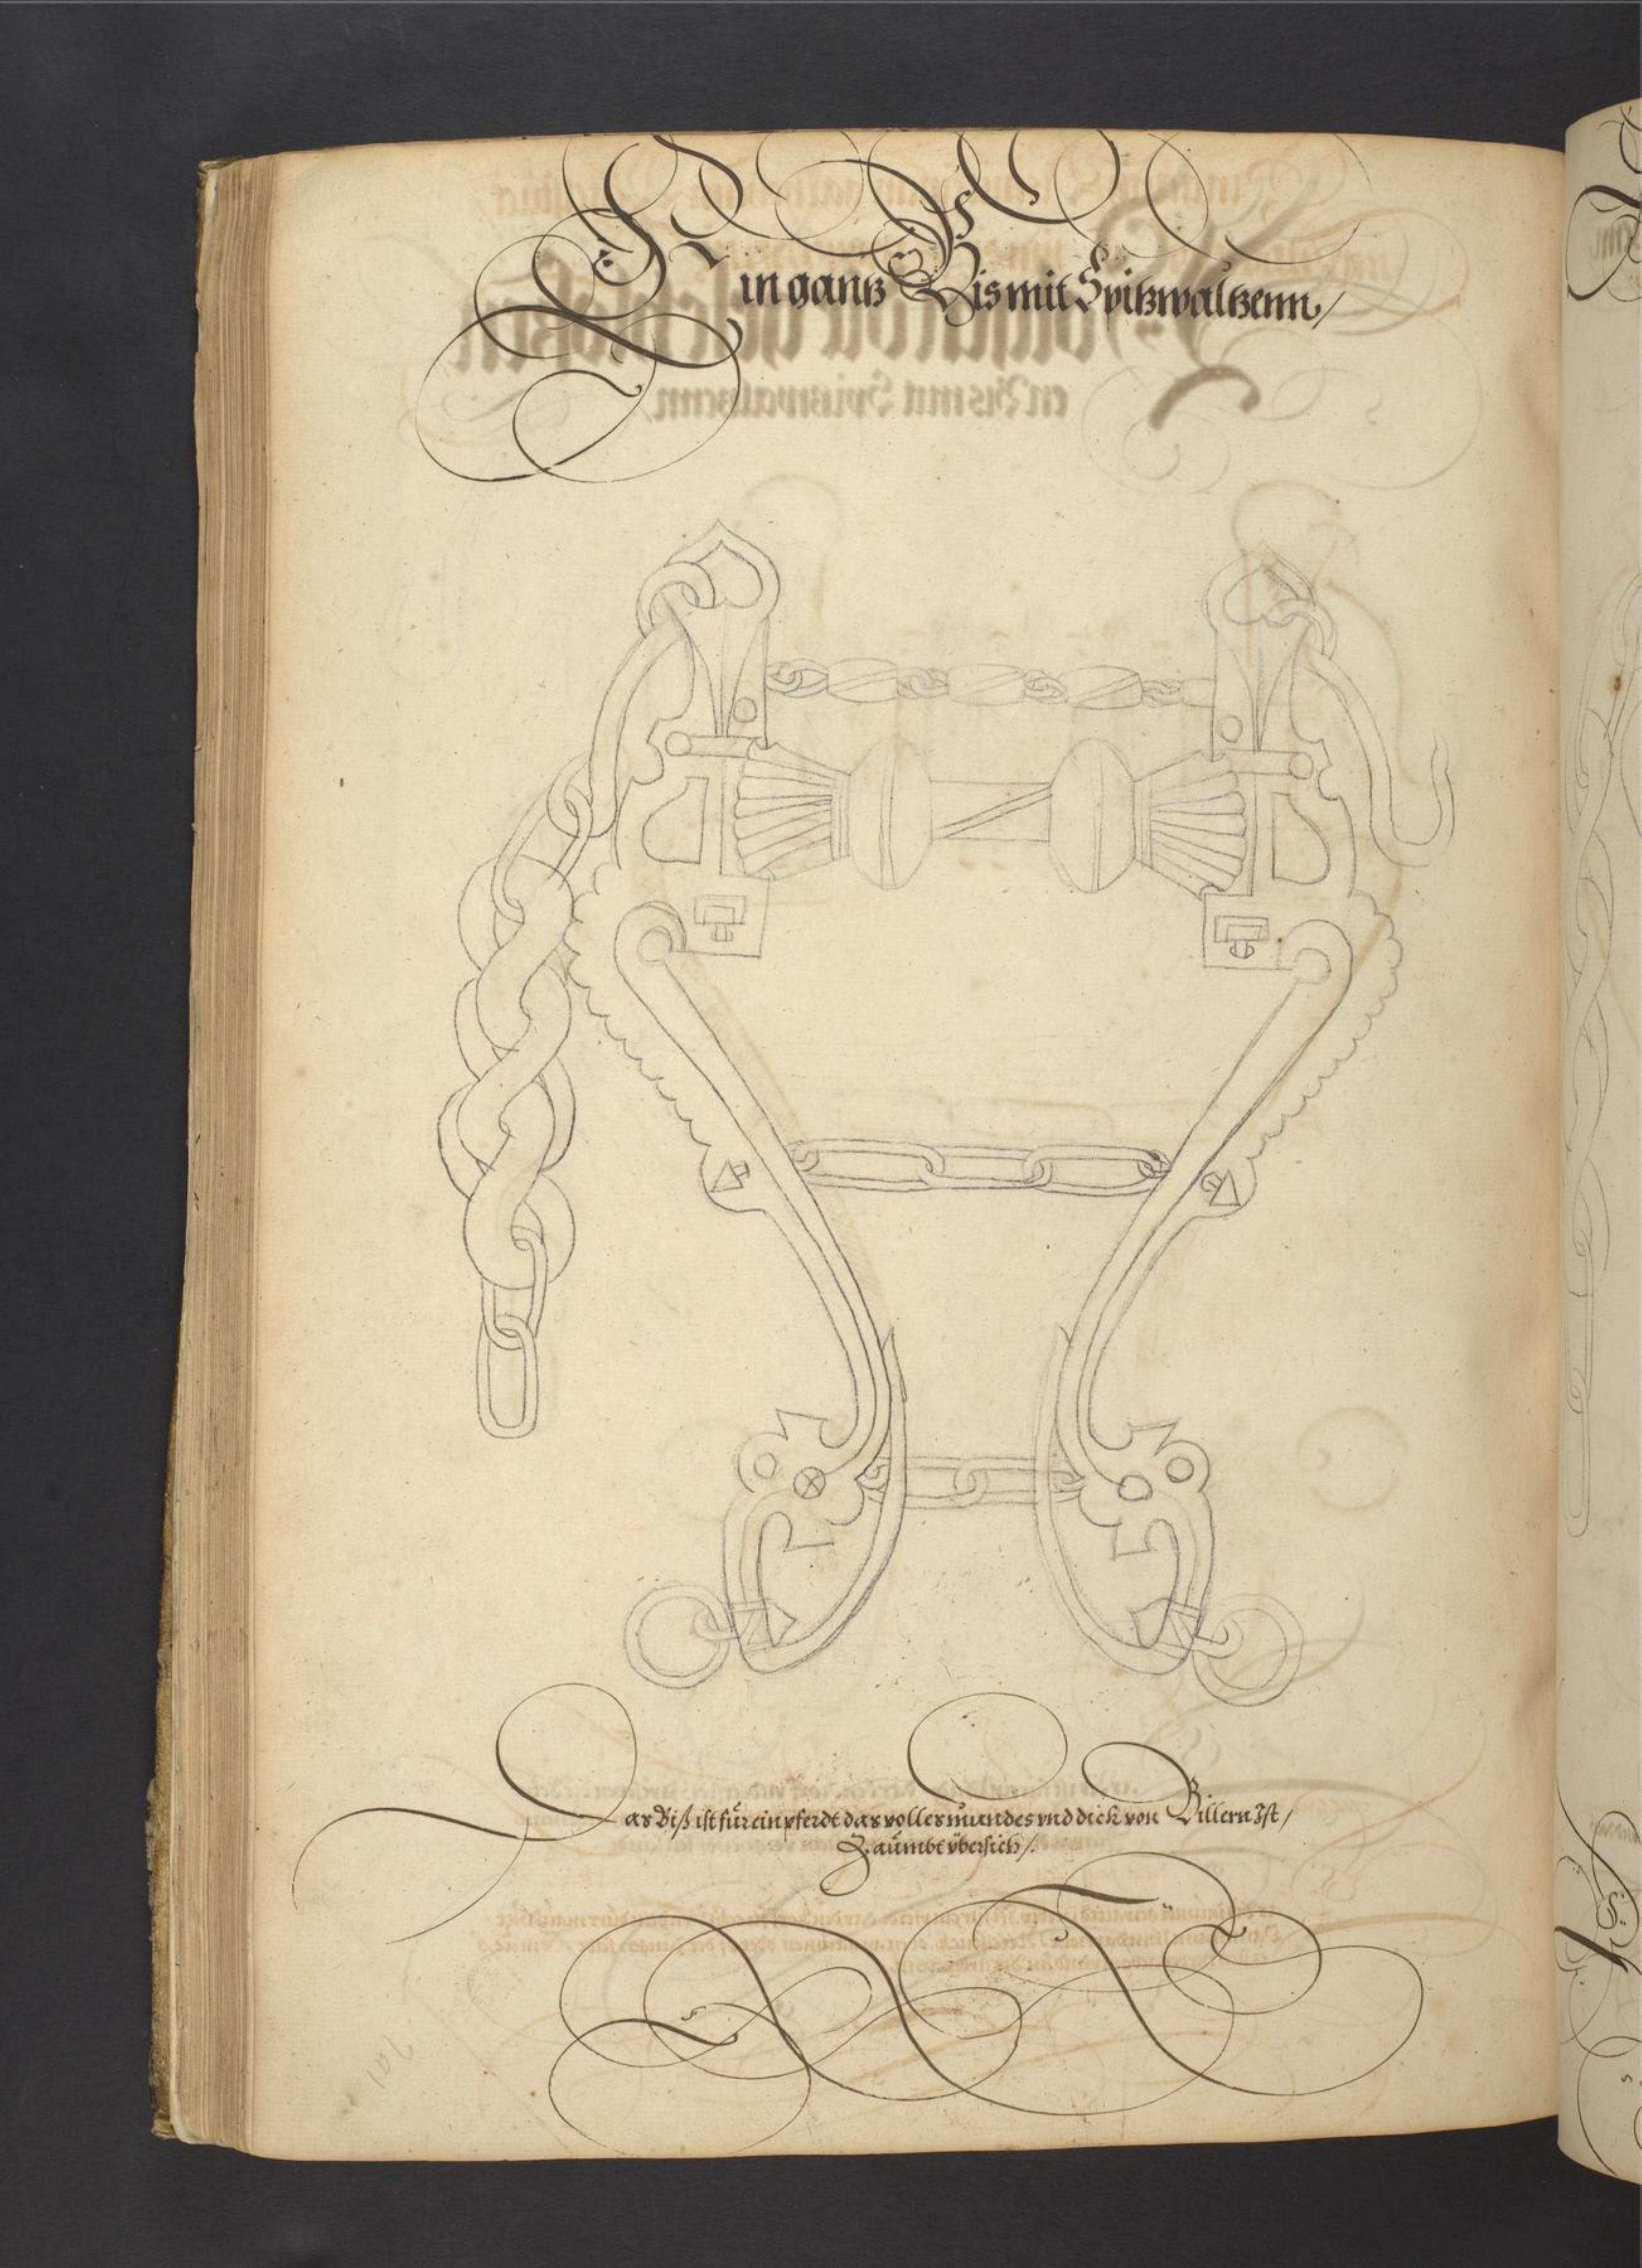 Ein gantz Bis mit Spitzwaltzenn /
Das Biß ist für ein pferdt das volles mundes vnd dick von Billern Ist /
Zaümbt übersich /.